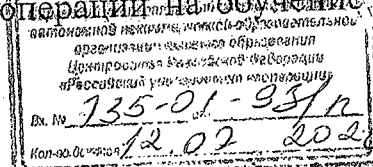 операции на обучение
автономной некоммерческой образовательной
организации высшего образования
Центросоюза Российской Федерации
«Российский университет кооперации»
Вх. № 135-01-93/п
12.07 202